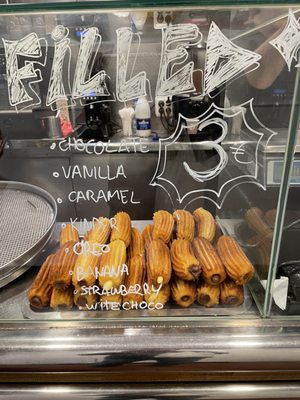 FiLLED
3€
• CHOCOLATE
• VANILLA
• CARAMEL
• KINDER
• OREO
• BANANA
• STRAWBERRY
• WITE CHOCO